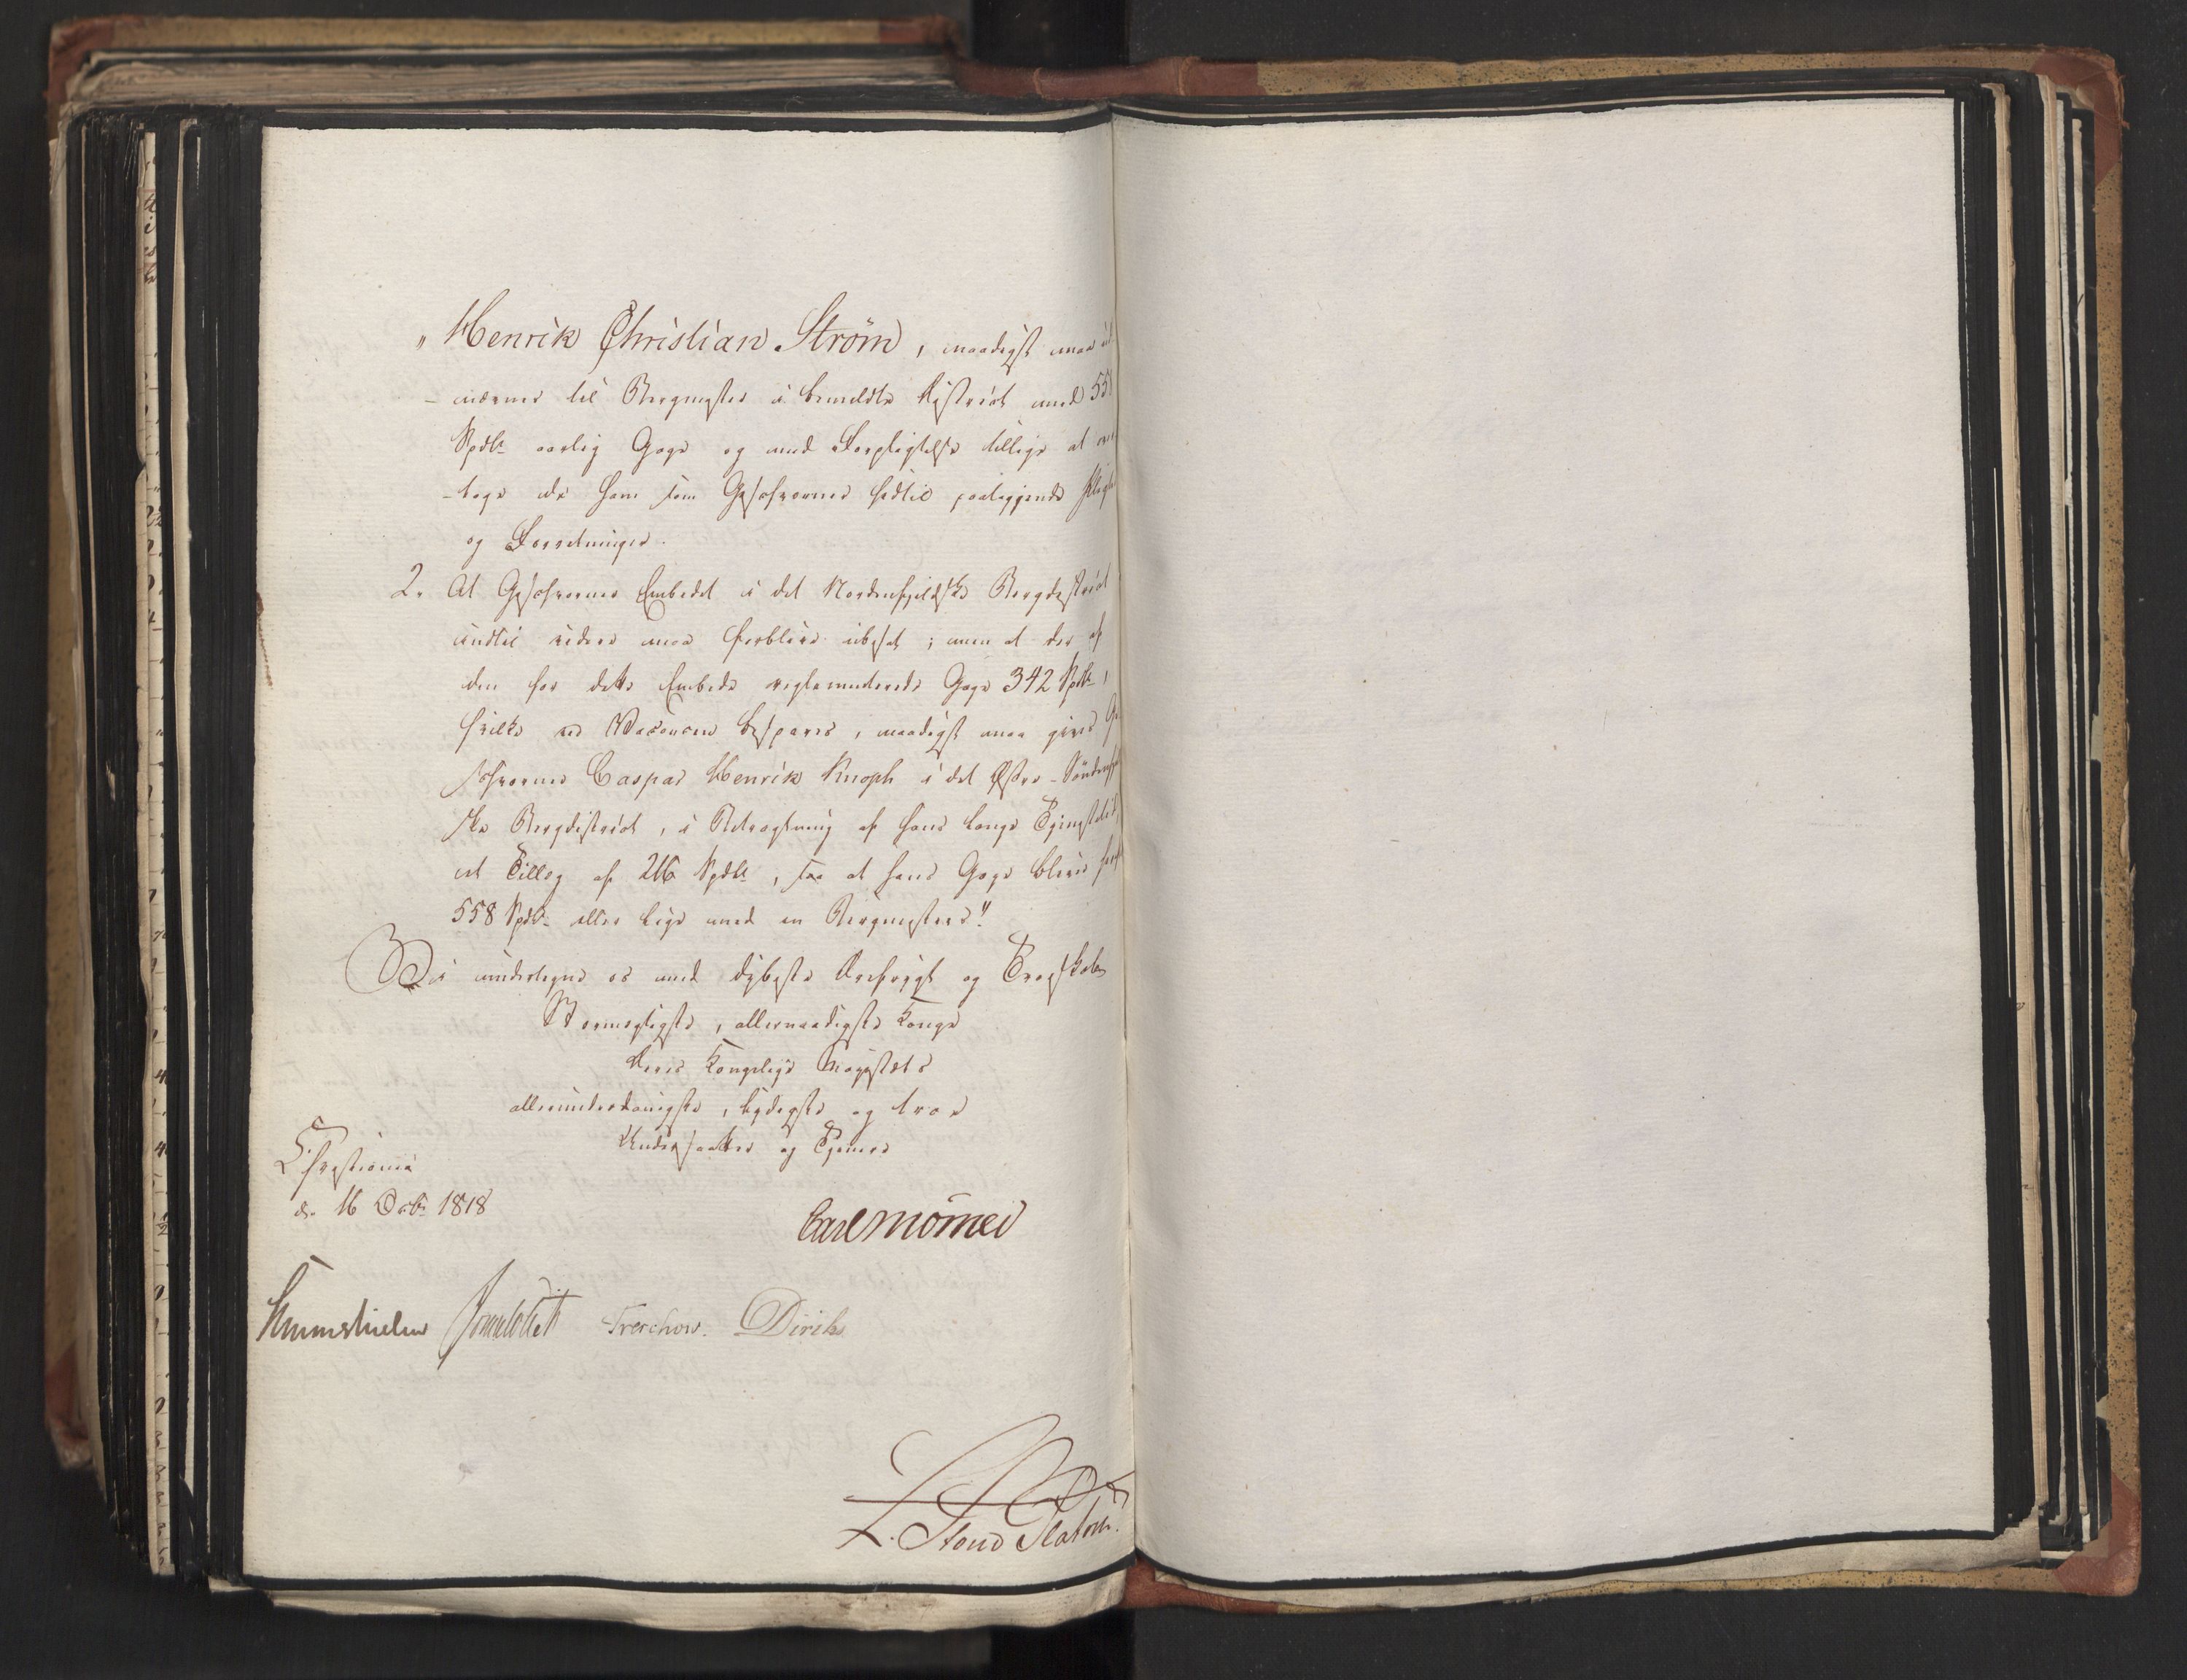 „Henrik Christian Strøm, naadigst maa ud
-nævnes til Bergmester i bemeldte District med 558
Spdlr aarlig Gage og med Forpligtelse tillige at over
-tage de ham som Geschworner hidtil paaliggende Pligter
og Forretninger.
2. At Geschworner Embedet i det Nordenfjeldske Bergdistrict
indtil videre maa forblive ubesat; men at der af
den for dette Embede reglementerede Gage 342 Spdlr,
hvilke ved Vacancen besparer, naadigst maa gives Ge
schworner Caspar Henrik Knoph i det Østre-Søndenfjeld
ske Bergdistrict, i Betragtning af hans lange Tjenestetid,
et Tillæg af 216 Spdlr, saa at hans Gage bliver
558 Spdlr eller lige med en Bergmesters."
Vi undertegne os med dybeste Ærefrygt og Troskab
Stormægtigste, allernaadigste Konge
Deres Kongelige Majestæts
allerunderdanigste, lydigste og troe
Undersaatter og Tjenere
Christiania
d. 16 Octbr 1818
Carl Mörner
Hummelhielm Sommelfeldt Treschow. Diriks
L. Stoud Platou.